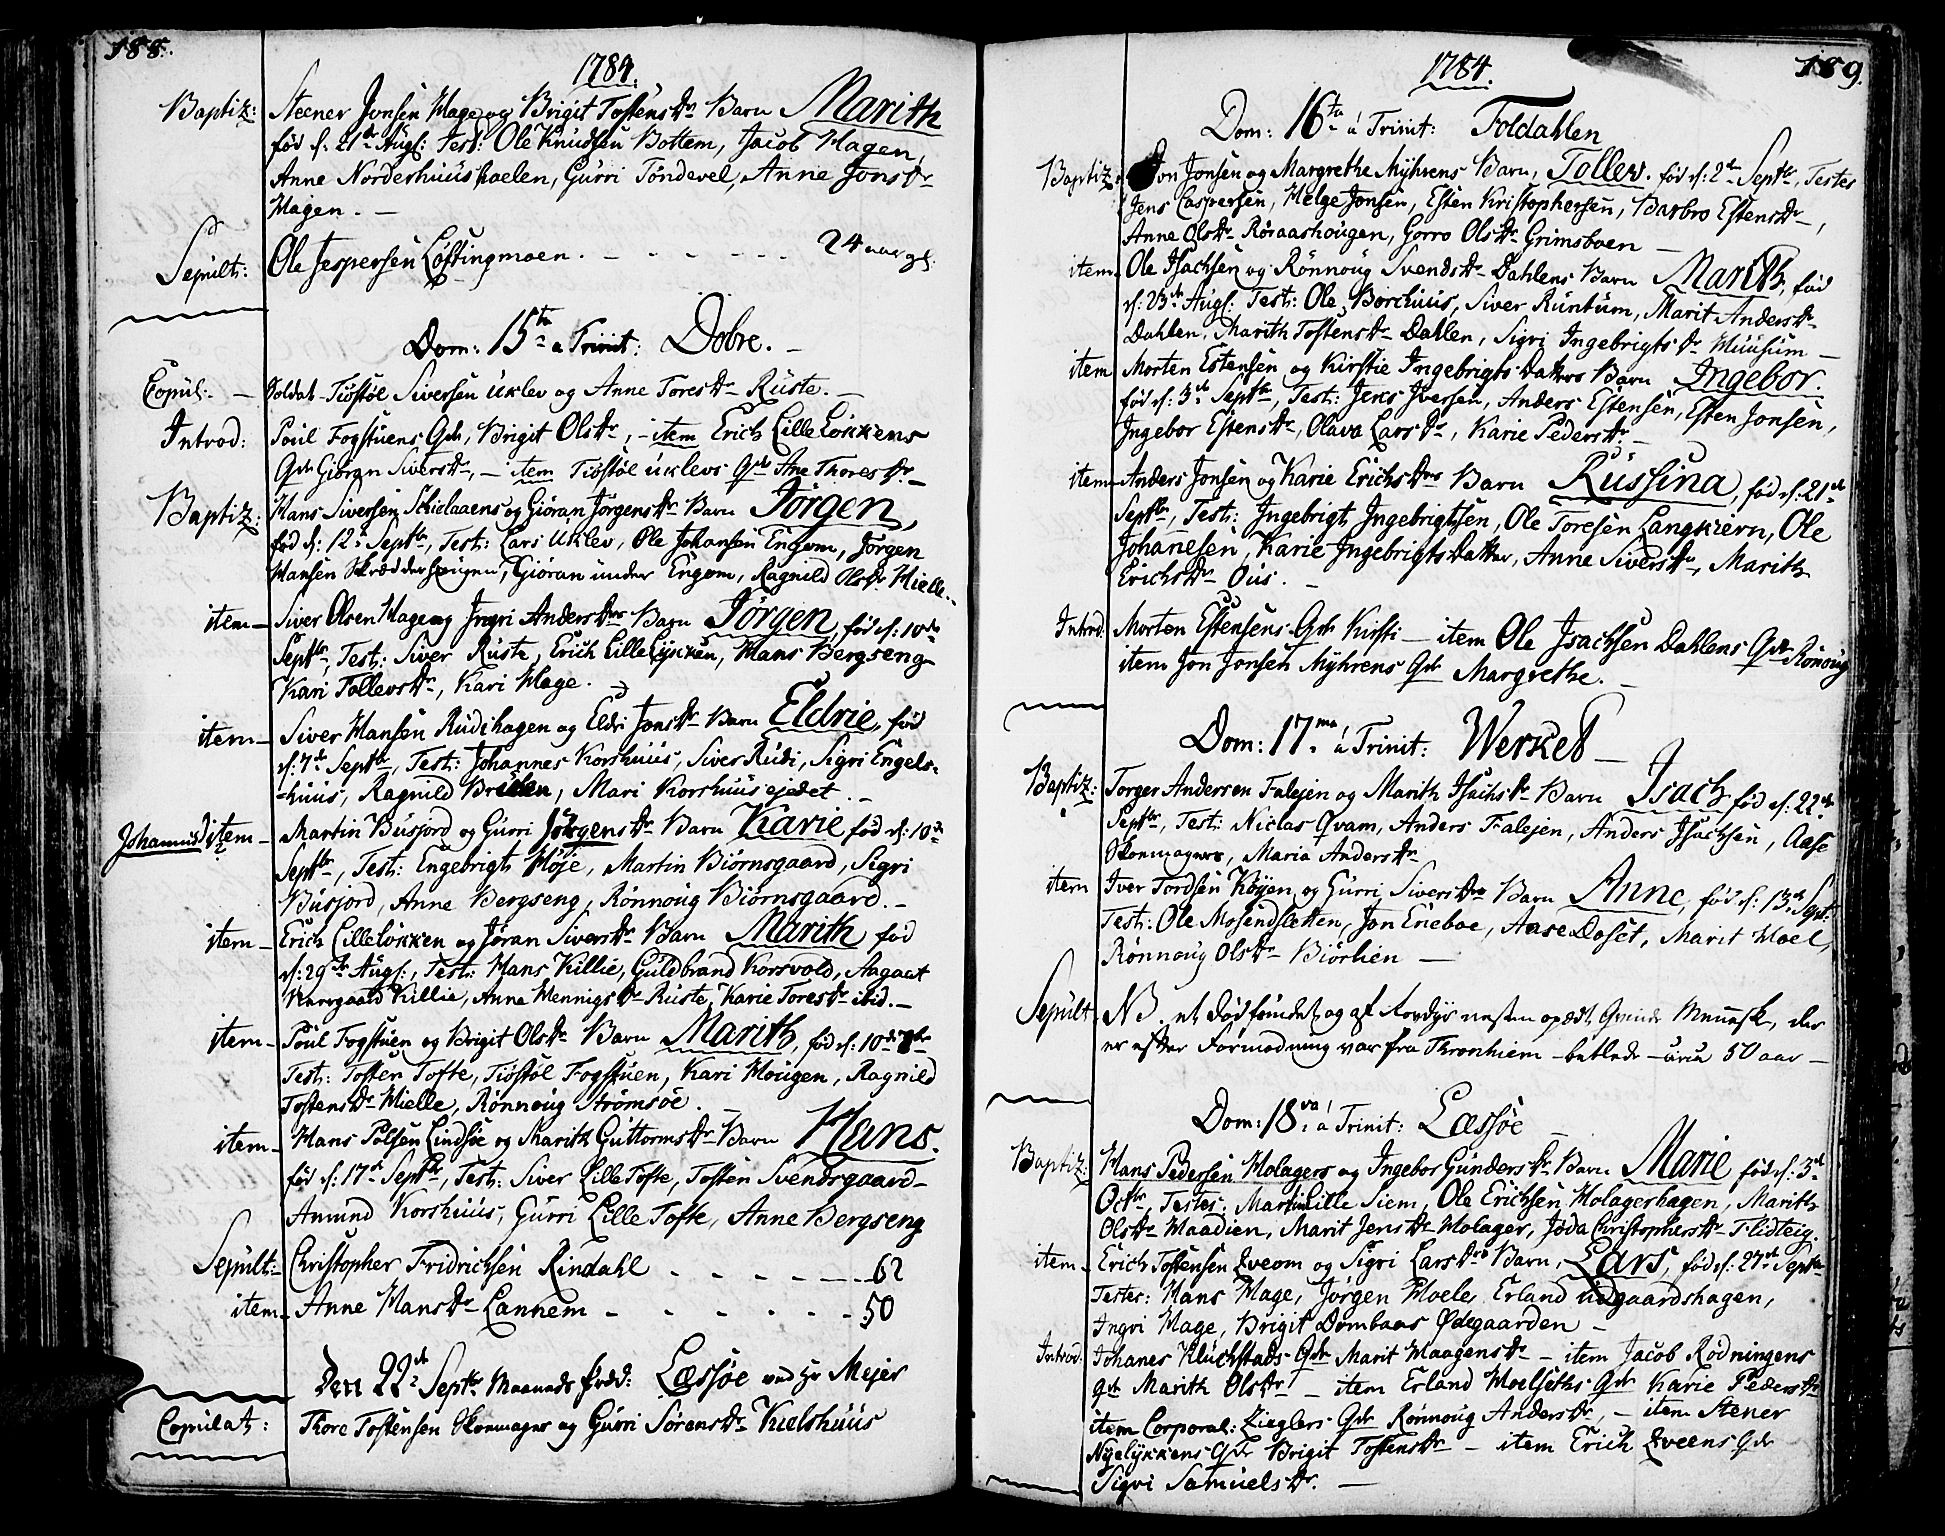 188.
1784.
Baptiz: Steener Jonsen Hage og Brigit Tostensdr Barn Marith
fød d: 21de Augl: Test: Ole Knudsen Bottem, Jacob Hagen,
Anne Norderhuus, Gurri Töndevel, Anne Jonsdr
Hagen. —
Sepult: Ole Jespersen Løftingmoen. - - - - - 24 aar gl.
Dom: 15ta a Trinit: Dobre. —
Copul: — Soldat Tiöstöl Siversen Uklev og Anne Toresdr Rüste. —
Introd: Poul Fogstuens Qde, Brigit Olsdr, — item Erich Lille Løkkens
Qde Giöran Siversdr, — item Tiöstöl Uklevs Qde Ane Thoresdr. —
Baptiz: Hans Siversen og Giöran Jörgensdr Barn Jörgen,
fød d: 12te Septbr, Test: Lars Uklev, Ole Johansen Engom, Jörgen
Hansen, Giöran under Engom, Ragnild Olsdr Hielle. —
item — Siver Olsen Hage og Ingri Andersdrs Barn Jörgen, fød d: 10de
Septbr, Test: Siver Rüste, Erich Lille Lykken, Hans Bergseng
Kari Tollevsdr, Kari Hage. —
item — Siver Hansen Rudihagen og Eldri Jonsdr Barn Eldrie, fød
d: 7de Septbr, Test: Johannes Korshuus, Siver Rudi, Sigri Engels=
=huus, Ragnild, Mari Korshuusejedet. —
item — Martin Busjord og Gurri Jörgensdr Barn Karie fød d: 10de
Septbr, Test: Engebrigt Höje, Martin Biörnsgaard, Sigri
Busjord, Anne Bergseng, Rönnoug Biörnsgaard. —
item — Erich Lilleløkken og Jöran Siversdr Barn Marith fød
d: 29de Augl:, Test: Hans Killie, Guldbrand Korsvold, Aagaat
Killie, Anne Hennigsdr Rüste, Karie Toresdr ibid. —
item — Poul Fogstuen og Brigit Olsdr Barn Marith, fød d: 10de 7br
Test: Tosten Tofte, Tiöstöl Fogstuen, Kari Hougen, Ragnild
Tostensdr Hielle, Rönnoug Strömsöe. —
item — Hans Polsen Lindsöe og Marith Guttormsdr Barn Hans.
fød d: 17de Septbr, Test: Siver Lille Tofte, Tosten Svendsgaard —
Amund Korshuus, Gurri Lille Tofte, Anne Bergseng
Sepult: — Christopher Fridrichsen Rindahl - - - - - 62
item — Anne Hansdr Lannem - - - - - 50
Den 22de Septbr Maaneds præd: Læssöe ved Hr Mejer
Copulat: Thore Tostensen Skomager og Gurri Sörensdr Kielshuus
189.
1784.
Dom: 16ta á Trinit: Foldahlen
Baptiz: Jon Jonsen og Margrethe Myhrens Barn, Tollev. fød d: 2de Septbr, Testes
Jens Caspersen, Helge Jonsen, Esten Kristophersen, Barbro Estensdr,
Anne Olsdr Röraashougen, Gorro Olsdr Grimsboen —
item Ole Isachsen og Rönnoug Svendsdr Dahlens Barn Marith, fød
d: 23de Augl: Test: Ole Borchuus, Siver Runtum, Marit Andersdr
Dahlen, Marith Tostensdr Dahlen, Sigri Ingebrigtsdr Muusum —
item Morten Estensen og Kirstie Ingebrigts Datters Barn Ingebor.
fød d: 3de Septbr, Test: Jens Iversen, Anders Estensen, Esten Jonsen,
Ingebor Estensdr, Olava Larsdr, Karie Pedersdr. —
item Anders Jonsen og Karie Erichsdrs Barn Russina, fød d: 21de
Septbr, Test: Ingebrigt Ingebrigtsen, Ole Toresen Langkiern, Ole
Johanesen, Karie Ingebrigts Datter, Anne Siversdr, Marith
Erichsdr Ous. —
Introd: Morten Estensens Qde Kirsti — item Ole Isachsen Dahlens Qde Rönoug
item Jon Jonsen Myhrens Qde Margrethe. —
Dom: 17ma á Trinit: Werket —
Baptiz: Torger Andersen Falejen og Marith Isachsdr Barn Isach fød d: 22de
Septbr, Test: Niclas Qvam, Anders Falejen, Anders Isachsen, Aase
Skomagers, Maria Andersdr
item Iver Tordsen Höyen og Gurri Siversdrs Barn Anne, fød d: 13de Sept:
Test: Ole Mosendsletten, Jon Eneboe, Aase Doset, Marit Moel,
Rönnoug Olsdr Biörlien —
Sepult. NB. et dödfundet og af Aadsyr nesten opædt Qvinde Mennesk, der
er efter Formodning var fra Thronhiem — betlede — circa 50 aar —
Dom: 18va á Trinit: Læssöe —
Baptiz: Hans Pedersen Holagers og Ingebor Gundersdr Barn Marie fød d: 3de
Octbr, Testes: Martin Lille Siem, Ole Erichsen Holagerhagen, Marith
Olsdr Maadien, Marit Jensdr Holager, Joda Christophersdr Flidteig.
item — Erich Tostensen Zveom og Sigri Larsdrs Barn, Lars, fød d: 27de Septbr
Testes: Hans Hage, Jörgen Hoele, Erland Udgaardshagen,
Ingri Hage, Brigit Dombaas Ødegaarden —
Introd. Johanes Kluchstads Qde Marit Haagensdr — item Jacob Rødningens
Qde Marith Olsdr — item Erland Moelseths Qde Karie Pedersdr
item Corporal: Zieglers Qde Rönnoug Andersdr, — item Stener
Nyelykkens Qde Brigit Tostensdr — item Erich Zveens Qde
Sigri Samuelsdr. —